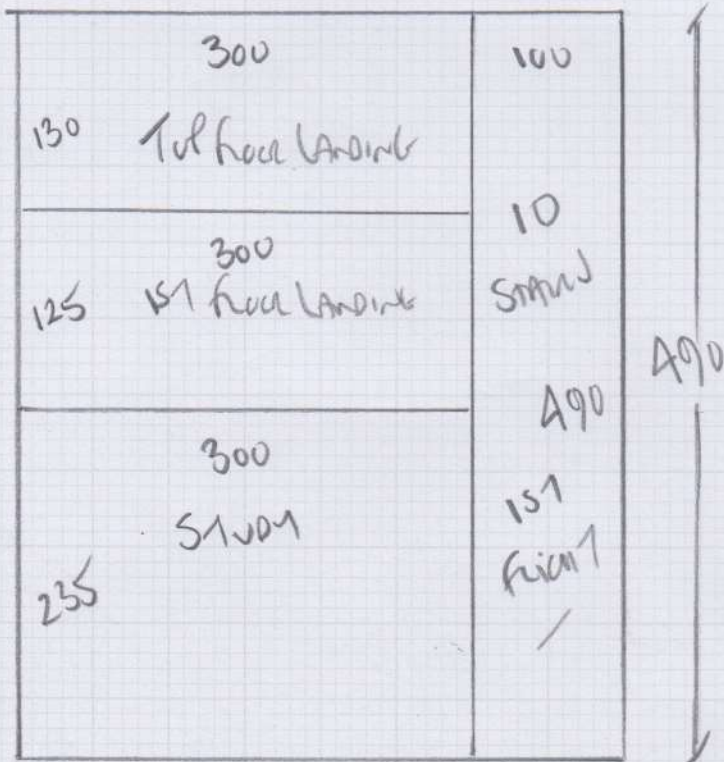 300
130 TOP FLOOR LANDING
300
125 1ST FLOOR LANDING
300
STUDY
235
100
10
STAIRS
490
1ST
FLIGHT
490